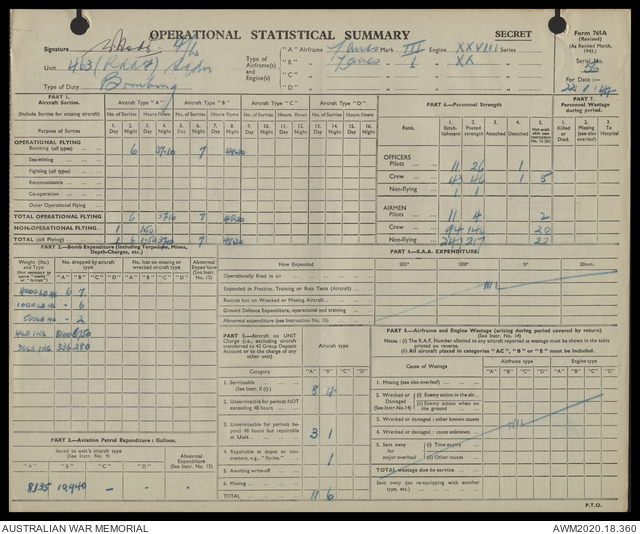 OPERATIONAL STATISTICAL SUMMARY
SECRET
Form 765A
(Revised)
(As Revised March, 1943.)
Serial No. 56
For Date :—
22 1 44
Signature
Unit 463 (RAAF) Sqdn
Type of Duty Bombing
Type of Airframe(s) and Engine(s)
"A" Airframe Lancs Mark III Engine XXVIII Series
"B" " Lancs " I " XX "
"C" " " " "
"D" " " " "
PART 1.
Aircraft Sorties.
(Include Sorties for missing aircraft)
Aircraft Type "A" Aircraft Type "B" Aircraft Type "C" Aircraft Type "D"
No. of Sorties Hours flown No. of Sorties Hours flown No. of Sorties Hours flown No. of Sorties Hours flown
Purpose of Sorties
1. Day 2. Night 3. Day 4. Night 5. Day 6. Night 7. Day 8. Night 9. Day 10. Night 11. Day 12. Night 13. Day 14. Night 15. Day 16. Night
OPERATIONAL FLYING
Bombing (all types) 6 37.10 7 45.20
Sea-mining
Fighting (all types)
Reconnaissance
Co-operation
Other Operational Flying
TOTAL OPERATIONAL FLYING 6 37.10 7 45.20
NON-OPERATIONAL FLYING 1
TOTAL (all Flying) 1 6 7 45.20
PART 6.—Personnel Strength
Rank.
1. Establishment 2. Posted strength 3. Attached 4. Detached
OFFICERS
Pilots 11 26 1
Crew 43 46 1 5
Non-flying 1 1
AIRMEN
Pilots 11 4 2
Crew 94 20
Non-flying 217 22
PART 7.
Personnel Wastage during period.
1. Killed or Died. 2. Missing (see also over) 3. To Hospital
PART 2.—Bomb Expenditure (including Torpedoes, Mines, Depth-Charges, etc.)
Weight (lbs.) and Type
No. dropped by aircraft type
No. lost on missing or wrecked aircraft type
Abnormal Expen'ture (See Instr. 15)
"A" "B" "C" "D" "A" "B" "C" "D"
4000LB HC 6 7
1000LB HC - 6
500LB HC - 2
4LB INC 8100 6750
30LB INC 336 280
PART 4.—S.A.A. EXPENDITURE.
How Expended .303" .300" .5" 20mm.
Operationally fired in air
Expended in Practice, Training or Butt Tests (Aircraft)
Rounds lost on Wrecked or Missing Aircraft
Ground Defence Expenditure, operational and training
Abnormal expenditure (see Instruction 15)
NIL
PART 5.—Aircraft on UNIT Charge (i.e., excluding aircraft transferred to 43 Group Deposit Account or to the charge of any other unit)
Aircraft type
Category "A" "B" "C" "D"
1. Serviceable (See Instr. II (i) ) 8 4
2. Unserviceable for periods NOT exceeding 48 hours
3. Unserviceable for periods beyond 48 hours but repairable at Unit 3 1
4. Repairable at depot or contractors, e.g., "fly-ins." 1
5. Awaiting write-off
6. Missing
TOTAL 11 6
PART 8.—Airframe and Engine Wastage (arising during period covered by return)
(See Instr. No. 14)
Notes : (i) The R.A.F. Number allotted to any aircraft reported as wastage must be shown in the table printed on reverse.
(ii) All aircraft placed in categories "AC", "B" or "E" must be included.
Cause of Wastage Airframe type Engine type
"A" "B" "C" "D" "A" "B" "C" "D"
1. Missing (see also overleaf)
2. Wrecked or Damaged (See Instr. No.14)
(i) Enemy action in the air
(ii) Enemy action when on the ground
3. Wrecked or Damaged : other known causes
4. Wrecked or damaged : cause unknown
5. Sent away for major overhaul
(i) Time expiry
(ii) Other causes
TOTAL wastage due to service
Sent away (on re-equipping with another type, etc.)
NIL
PART 3.—Aviation Petrol Expenditure : Gallons.
Issued to unit's aircraft type (See Instr. No. 9)
Abnormal Expenditure (See Instr. No. 15)
"A" "B" "C" "D"
8135 10940 - -
P.T.O.
AUSTRALIAN WAR MEMORIAL
AWM2020.18.360